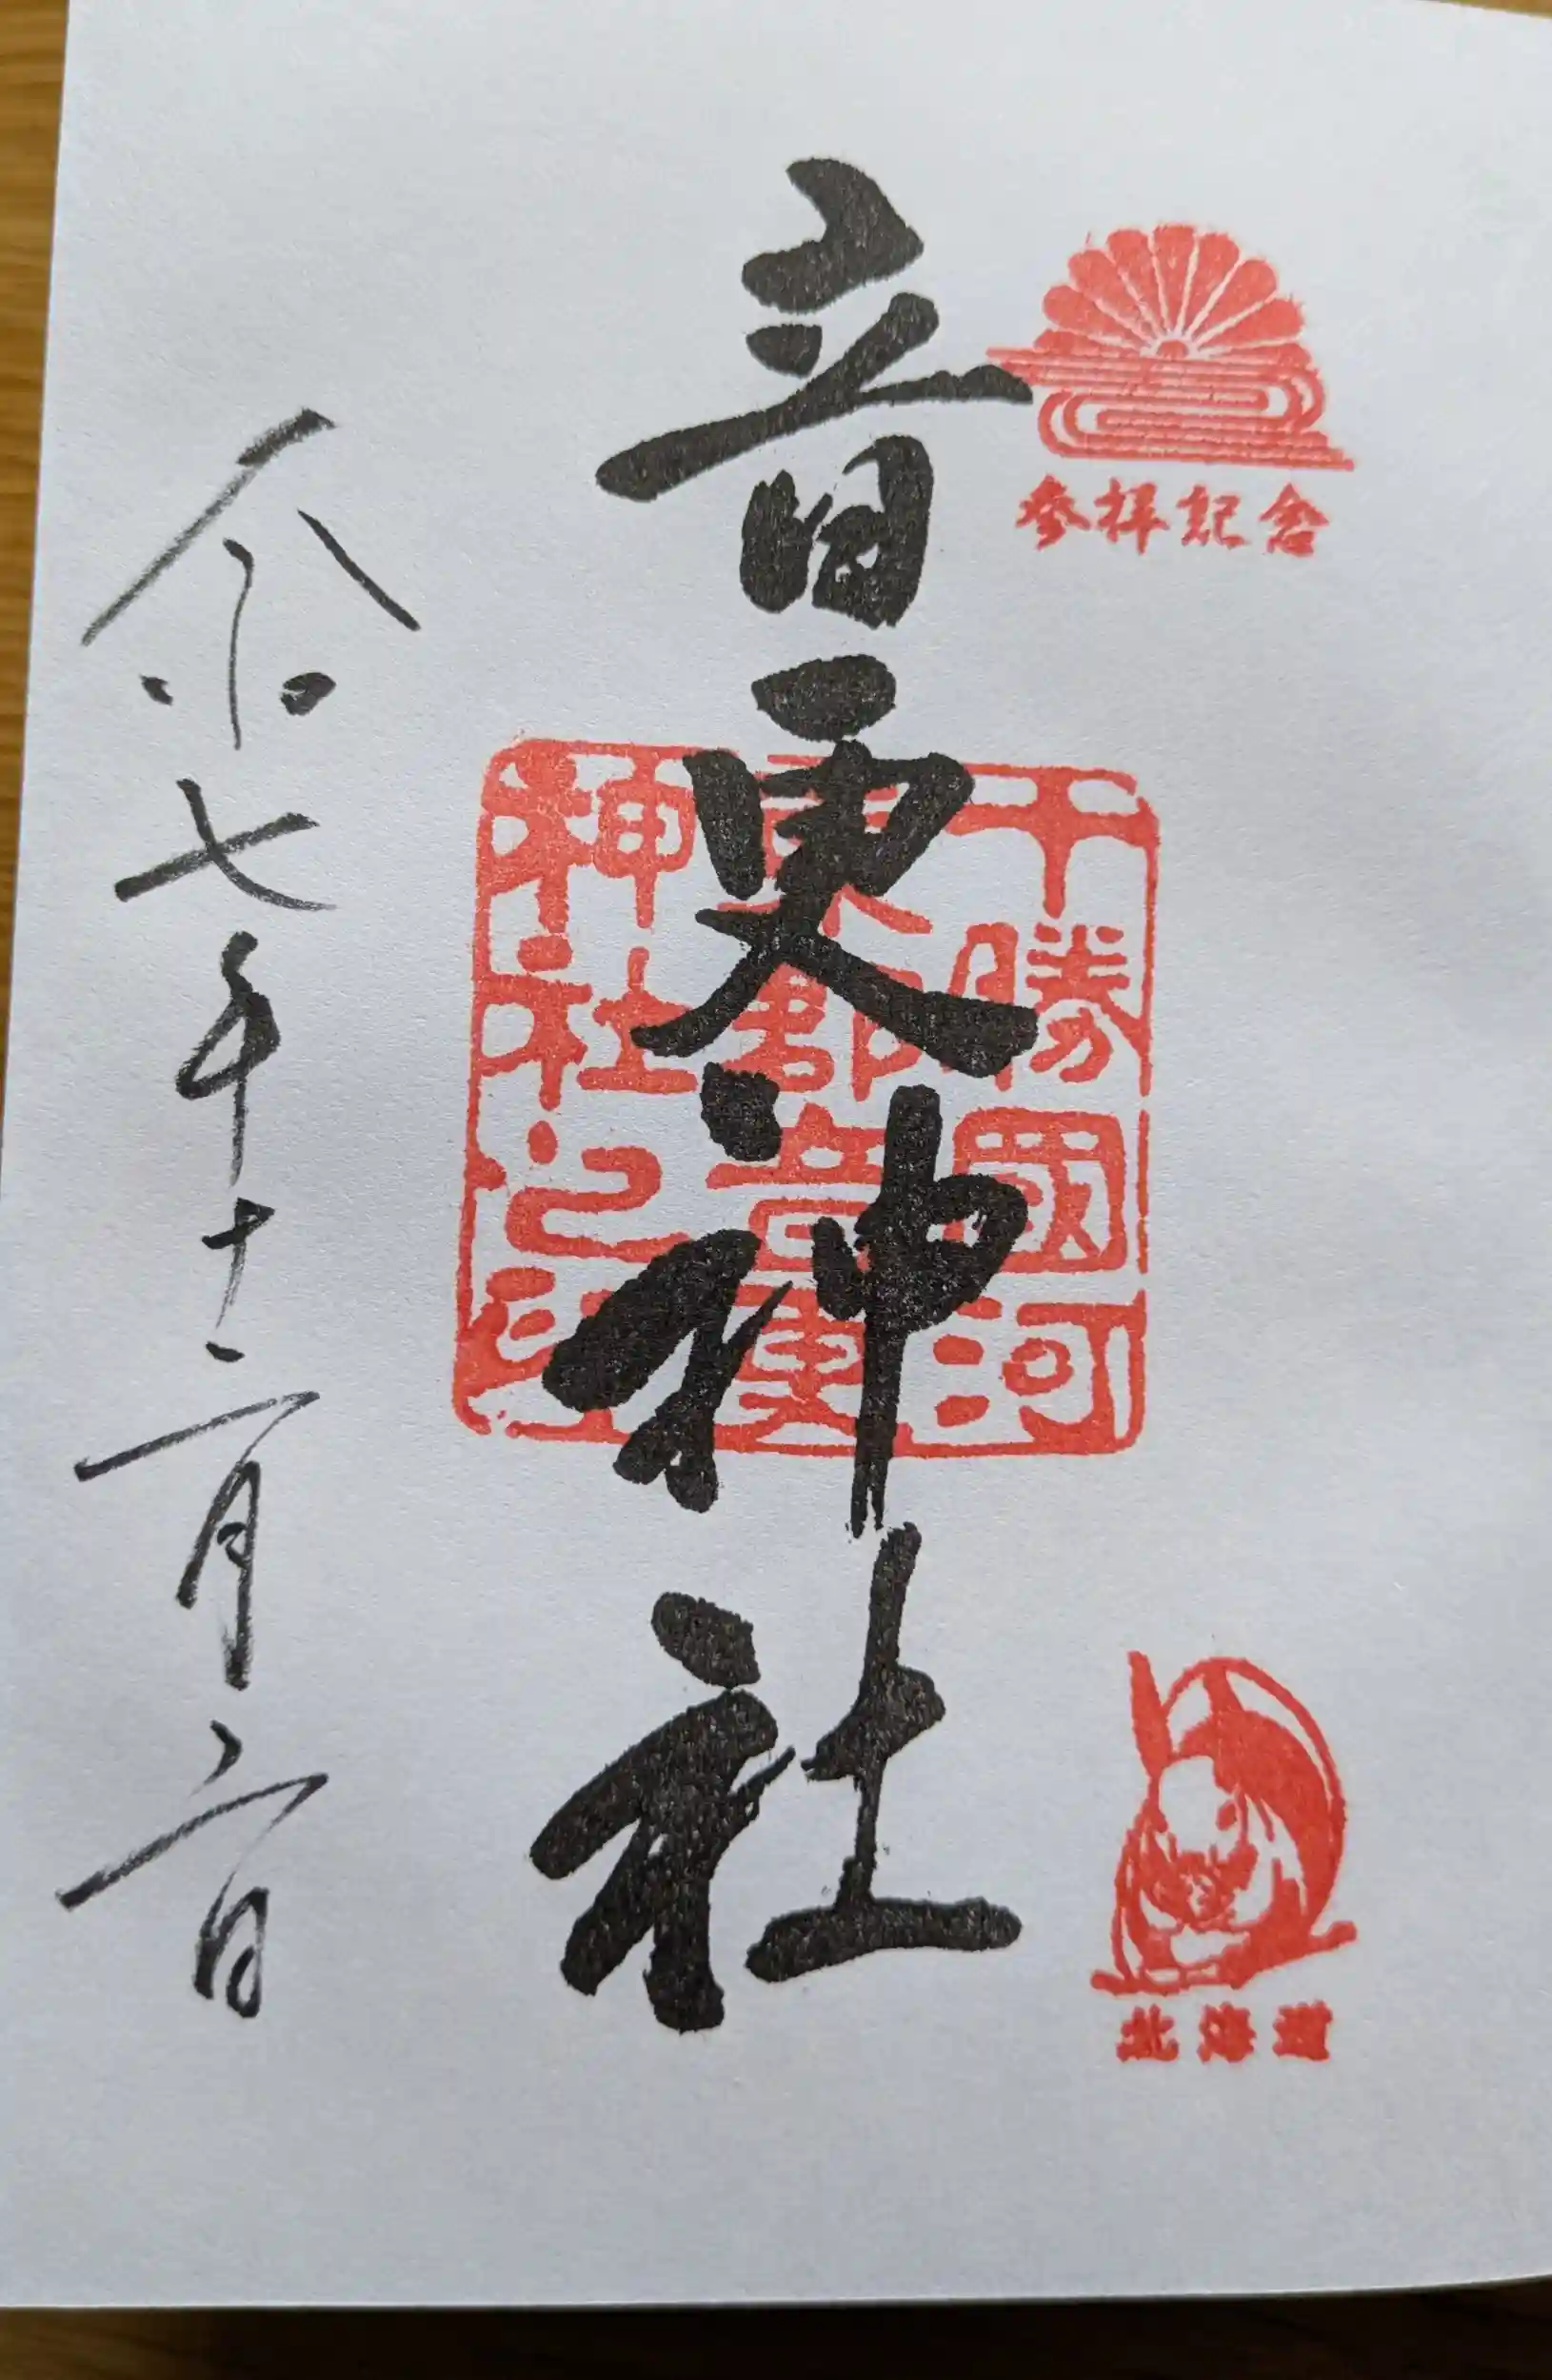 参拝記念
北海道
音更神社
十勝國河
東郡音更
神社之印
令和七年十二月二日